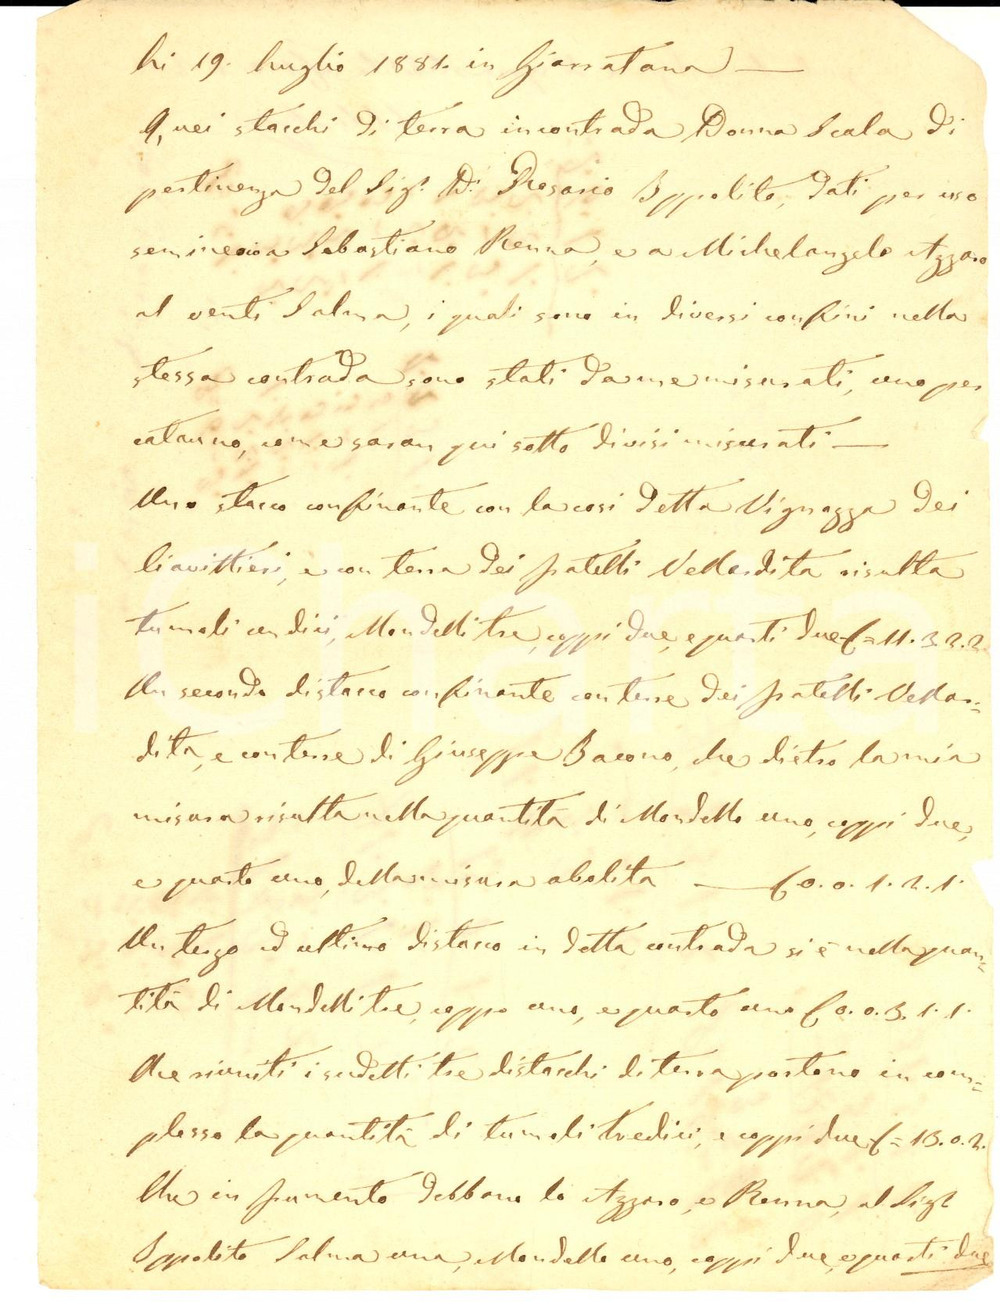 li 19. luglio 1881. in Giarratana
Quei stacchi di terra in contrada Donna Scala di
pertinenza del Sigr. Dn. Rosario Ippolito, dati per uso
semineria Sebastiano Renna, e a Michelangelo Azzaro
al venti Salma, i quali sono in diversi confini nella
stessa contrada sono stati da me misurati, uno per
catauno, come saran qui sotto divisi misurati
Uno stacco confinante con la così detta Vignazza dei
e con terra dei fratelli Vellardita risulta
tumoli undici, Mondelli tre, coppi due, e quarti due £=11.3.2.2.
Un secondo distacco confinante con terre dei fratelli Vellar=
dita, e con terre di Giuseppe Bacono, che dietro la mia
misura risulta nella quantità di Mondello uno, coppi due,
e quarto uno, della misura abolita £ 0.0.1.2.1.
Un terzo ed ultimo distacco in detta contrada si è nella quan=
tità di Mondelli tre, coppo uno, e quarto uno £ 0.0.3.1.1.
Che riuniti i sudetti tre distacchi di terra portono in com=
plesso la quantità di tumoli tredici, e coppi due £=13.0.2.
Che in frumento debbono lo Azzaro, e Renna, al Sigr
Ippolito Salma una, Mondello uno, coppi due, e quarti due
iCharta